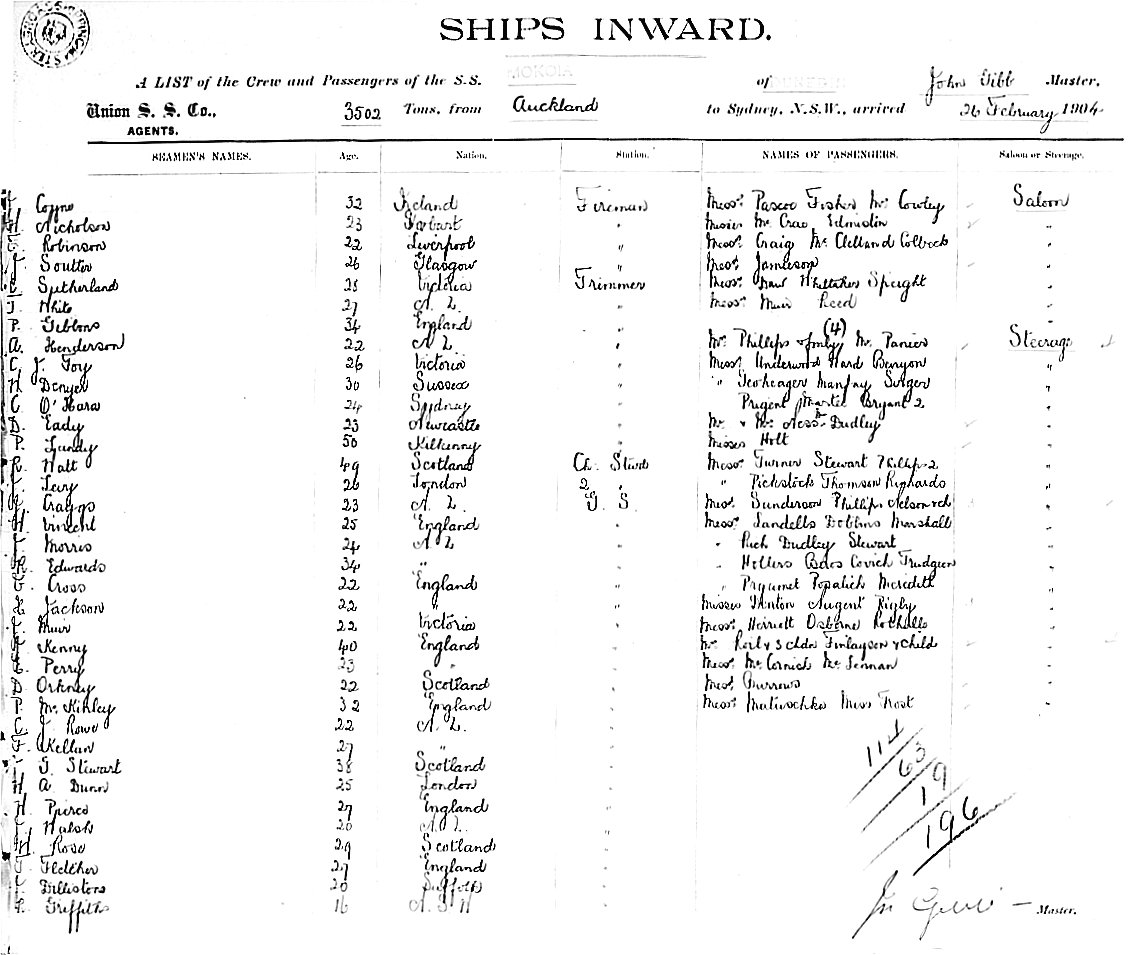 SHIPS INWARD.
A LIST of the Crew and Passengers of the S.S. MOKOIA of DUNEDIN John Gibb Master.
Union S. S. Co., 3502 Tons, from Auckland to Sydney, N.S.W., arrived 26 February 1904
AGENTS.
SEAMEN'S NAMES. Age. Nation. Station. NAMES OF PASSENGERS. Saloon or Steerage.
Coyne 32 Ireland Fireman Messrs Pascoe Fisher Mc Cowley Saloon
H. Nicholson 23 Hobart " Misses Mc Crae Edmistin "
Robinson 22 Liverpool " Messrs Craig Mc Clelland Colbeck "
J. Soutter 26 Glasgow " Messrs Jamieson "
Sutherland 28 Victoria Trimmer Messrs Whittaker Speight "
J. White 27 N. Z. " Messrs Muir Reed "
P. Gibbons 34 England "
A. Henderson 22 N Z " Mr Phillips & fmly (4) Mr Panier Steerage
C. J. Toy 26 Victoria " Messrs Underwood Ward Benyon "
H. Denyer 30 Sussex " " Manfay "
C. O'Hara 24 Sydney " Prigent Bryant 2 "
D. Eady 23 Newcastle " Mr & Mrs Ness Dudley "
P. Lundy 50 Kilkenny " Misses Holt "
R. Watt 49 Scotland Ch. Stwd Messrs Turner Stewart Phillips 2 "
Levy 26 London 2 " " Pickstock Thomson Richards "
Craggs 23 N. Z. G. S Messrs Sunderson Phillips Nelson & ch "
H. Vincent 25 England " Messrs Sandells Dobbins Marshall "
Morris 24 N Z " " Rich Dudley Stewart "
R. Edwards 34 " " " Hollins Covich Trudgeon "
Cross 22 England " " Popalich Meredith "
Jackson 22 " " Misses Fenton Nugent Rigby "
Muir 22 Victoria " Messrs Herriott Osborne "
Kenny 40 England " Mr & 3 chdn Finlayson & child "
Perry 23 " " Messrs Mc Cormick Mc Lennan "
D. Orkney 22 Scotland " Messrs Burrows "
P. Mc Kinley 32 England " Messrs Matuschka Miss Frost "
C. J. Rowe 22 N. Z. "
F. Kellan 27 " " 114
G. Stewart 38 Scotland " 63
H. A Dunn 25 London " 19
H. Pierce 27 England " 196
Walsh 20 N. Z. "
H. Rose 29 Scotland "
Fletcher 27 England "
Dillistons 20 Suffolk "
Griffiths 16 N S W "
Master.